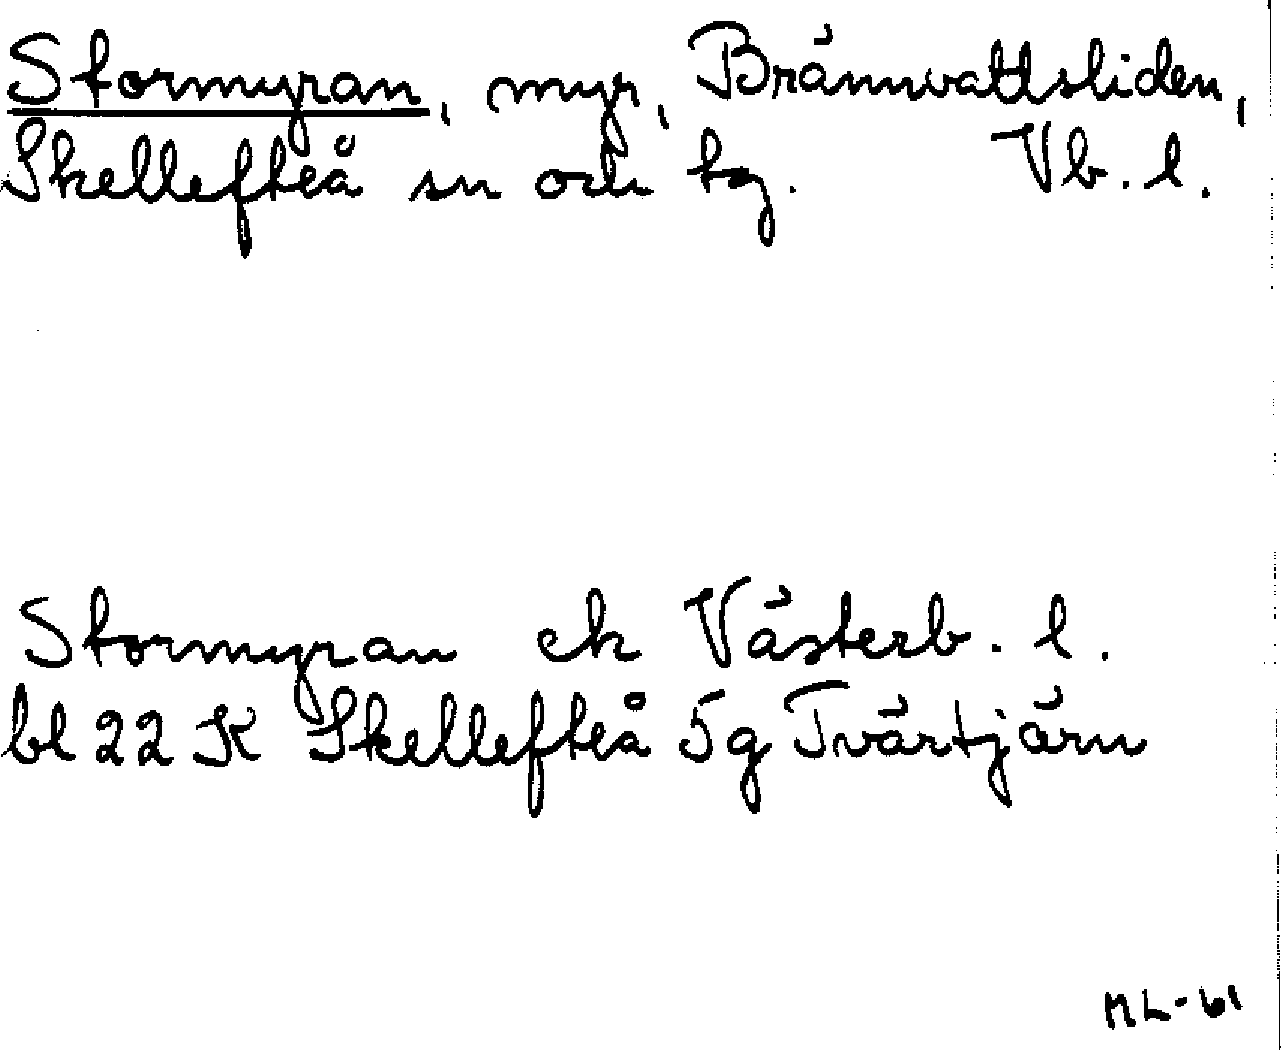 Stormyran, myr, Brännvattsliden,
Skellefteå sn och tg. Vb. l.
Stormyran ek Västerb. l.
bl 22 K Skellefteå 5g Tvärtjärn
ML-61